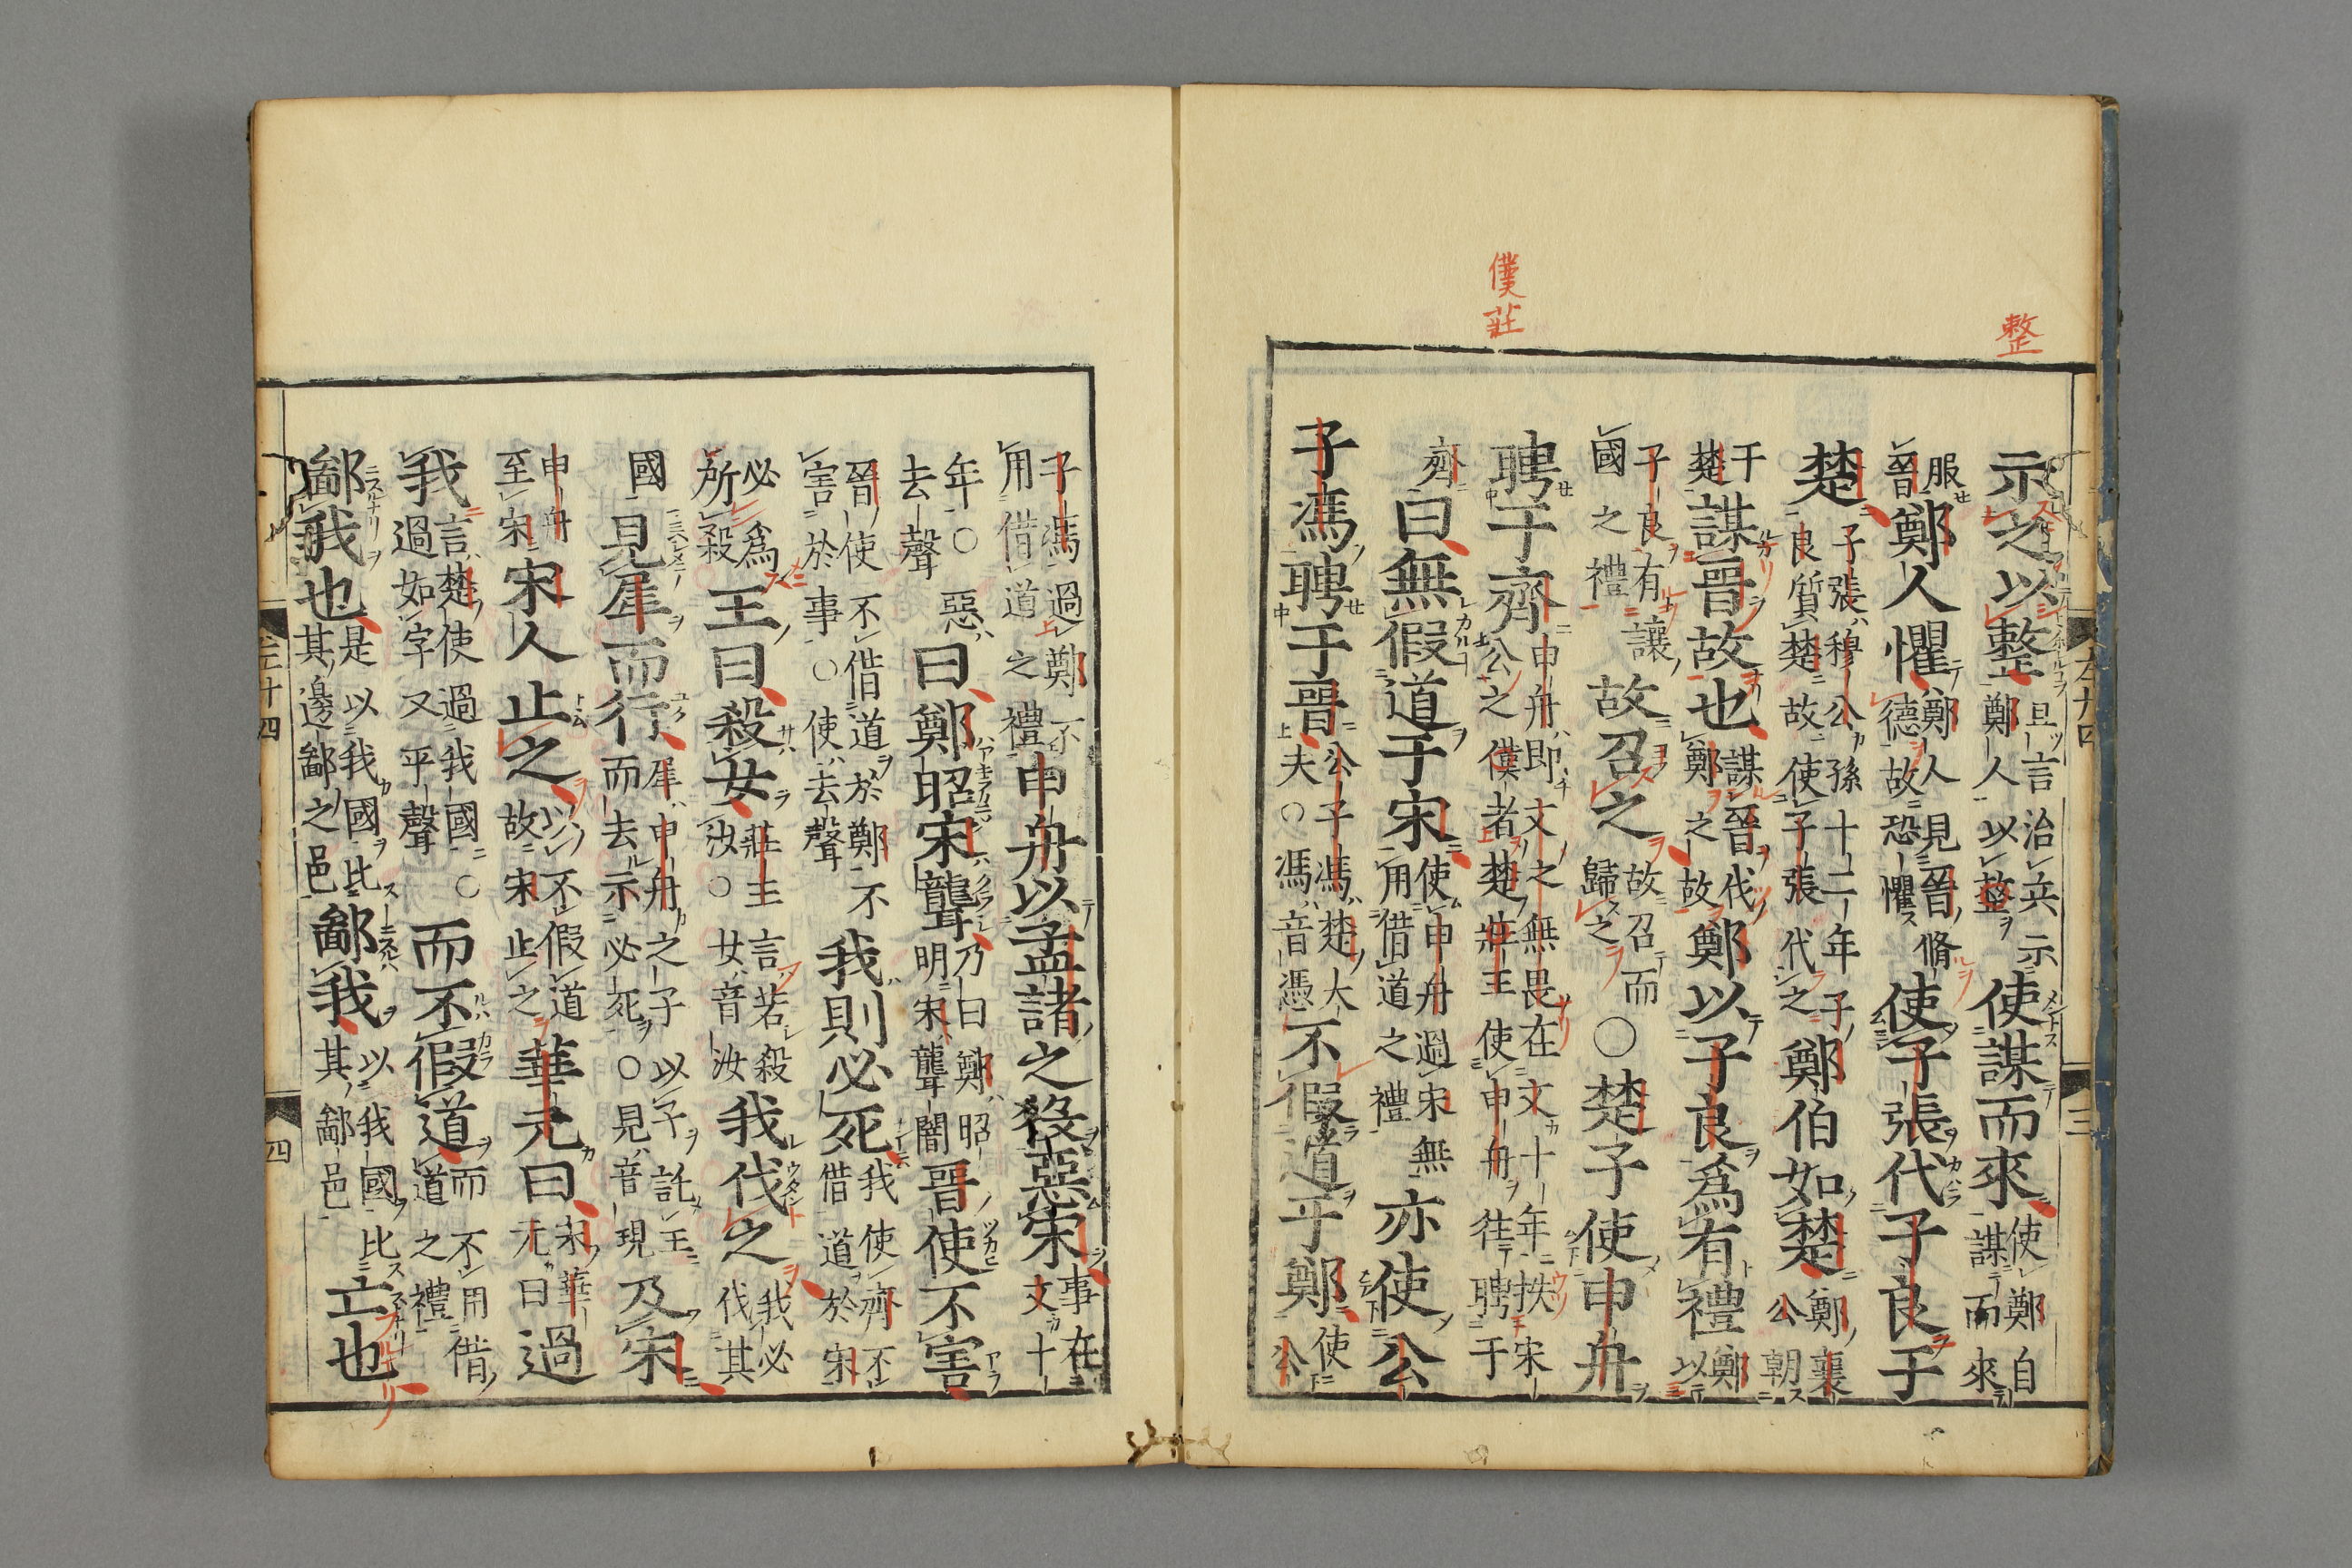 整
僕莊
示之以整且言治兵示鄭人以整使謀而來使鄭自謀而來
服晉鄭人懼鄭人見晉脩德故恐懼使子張代子良于
楚子張穆公孫十二年子良質楚故使子張代之鄭伯如楚鄭襄公朝
于楚謀晉故也謀晉伐鄭之故鄭以子良爲有禮鄭以
子良有讓國之禮故召之故召而歸之○楚子使申舟
聘于齊申舟即文之無畏在文十年抶宋公之僕者楚莊王使申舟徃聘于
齊曰無假道于宋使申舟過宋無用借道之禮亦使公
子馮聘于晉公子馮楚大夫○馮音憑不假道于鄭使公
三
子馮過鄭不用借道之禮申舟以孟諸之役惡宋事在文十
年○惡去聲曰鄭昭宋聾乃曰鄭昭明宋聾闇晉使不害
晉使不借道於鄭不害於事○使去聲我則必死我使齊不借道於宋
必爲所殺王曰殺女莊王言若殺汝○女音汝我伐之我必伐其
國見犀而行犀申舟之子以子託王而去示必死○見音現及宋
申舟至宋宋人止之以不假道故宋止之華元曰宋華元曰過
我言楚使過我國○過如字又平聲而不假道而不用借道之禮
鄙我也是以我國比其邊鄙之邑鄙我以我國比其鄙邑亡也
卷二十四
四